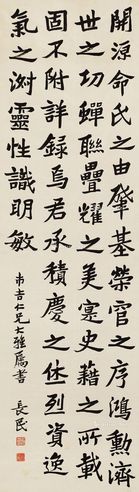 開源命氏之由肇基榮官之序鴻勳濟
世之功蟬聯疊耀之美寔史藉之所載
固不附詳録焉君承積慶之休烈資逸
氣之淵靈性識明敏
市吉仁兄大雅屬書 長民